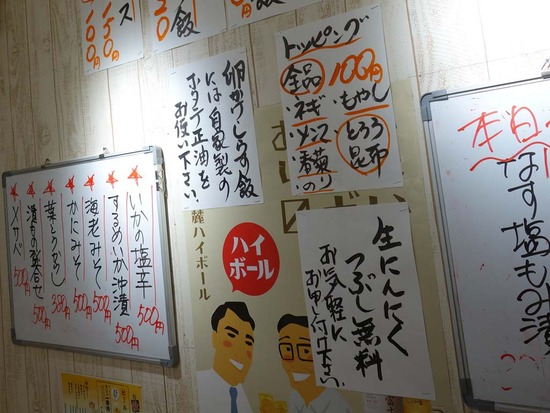 ス
100円
飯
トッピング
全品 100円
・ネギ
・もやし
・メンマ
・とろろ昆布
・青菊のり
卵かけしらす飯
には自家製の
ホタテ正油を
お使い下さい。
★いかの塩辛 500円
★するめいか沖漬 500円
★海老みそ 500円
★かにみそ 500円
★葉とうがらし 380円
★漬もの盛合せ 500円
★〆サバ 500円
ハイ
ボール
麓ハイボール
生にんにく
つぶし無料
お気軽に
お申し付け下さい。
本日
なす塩もみ漬